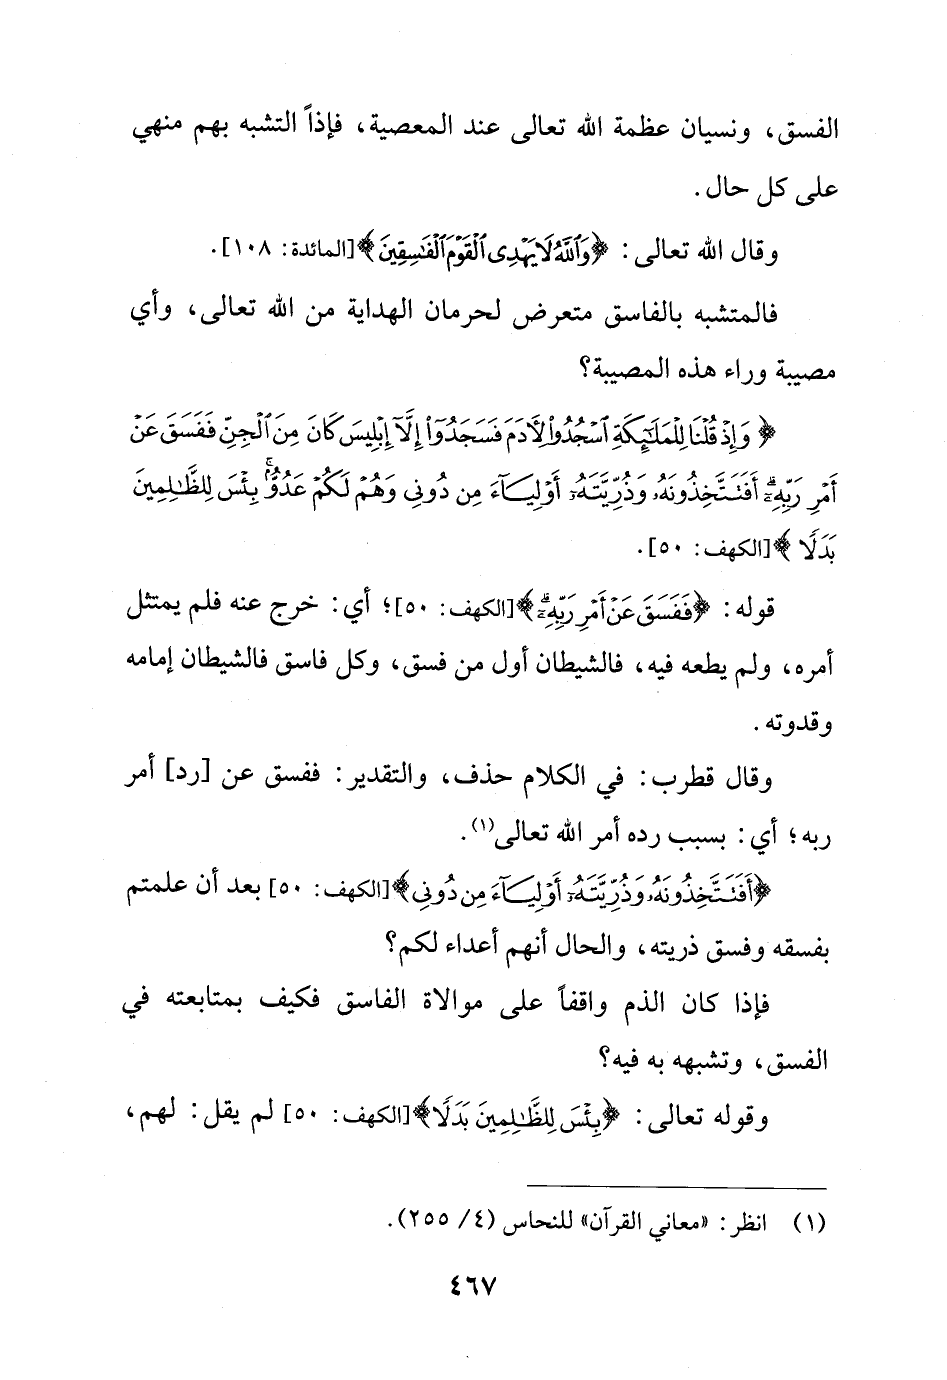 الفسق، ونسيان عظمة الله تعالى عند المعصية، فإذاً التشبه بهم منهي
على كل حال.
وقال الله تعالى: ﴿وَٱللَّهُ لَا يَهۡدِى ٱلۡقَوۡمَ ٱلۡفَٰسِقِينَ﴾ [المائدة: ١٠٨].
فالمتشبه بالفاسق متعرض لحرمان الهداية من الله تعالى، وأي
مصيبة وراء هذه المصيبة؟
﴿وَإِذۡ قُلۡنَا لِلۡمَلَٰٓئِكَةِ ٱسۡجُدُواْ لِأٓدَمَ فَسَجَدُوٓاْ إِلَّآ إِبۡلِيسَ كَانَ مِنَ ٱلۡجِنِّ فَفَسَقَ عَنۡ
أَمۡرِ رَبِّهِۦٓۗ أَفَتَتَّخِذُونَهُۥ وَذُرِّيَّتَهُۥٓ أَوۡلِيَآءَ مِن دُونِى وَهُمۡ لَكُمۡ عَدُوُّۢۚ بِئۡسَ لِلظَّٰلِمِينَ
بَدَلٗا﴾ [الكهف: ٥٠].
قوله: ﴿فَفَسَقَ عَنۡ أَمۡرِ رَبِّهِۦٓۗ﴾ [الكهف: ٥٠]؛ أي: خرج عنه فلم يمتثل
أمره، ولم يطعه فيه، فالشيطان أول من فسق، وكل فاسق فالشيطان إمامه
وقدوته.
وقال قطرب: في الكلام حذف، والتقدير: ففسق عن [رد] أمر
ربه؛ أي: بسبب رده أمر الله تعالى(١).
﴿أَفَتَتَّخِذُونَهُۥ وَذُرِّيَّتَهُۥٓ أَوۡلِيَآءَ مِن دُونِى﴾ [الكهف: ٥٠] بعد أن علمتم
بفسقه وفسق ذريته، والحال أنهم أعداء لكم؟
فإذا كان الذم واقفاً على موالاة الفاسق فكيف بمتابعته في
الفسق، وتشبهه به فيه؟
وقوله تعالى: ﴿بِئۡسَ لِلظَّٰلِمِينَ بَدَلٗا﴾ [الكهف: ٥٠] لم يقل: لهم،
(١) انظر: «معاني القرآن» للنحاس (٤/ ٢٥٥).
٤٦٧